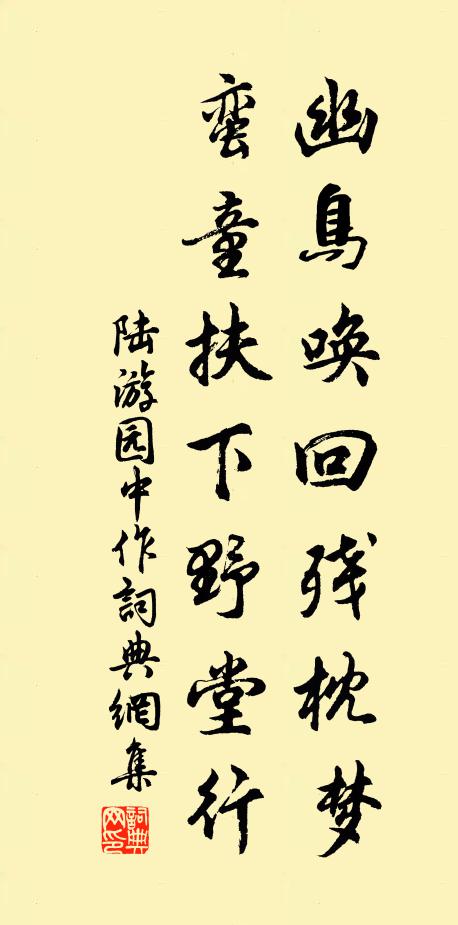 幽鳥唤回残枕梦
蛮童扶下野堂行
陆游园中作詞典網集
詞典网印